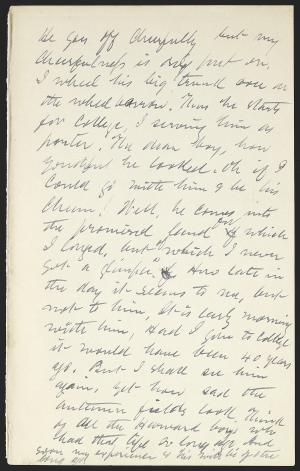 He goes off cheerfully but my
cheerfulness is only put on.
I wheel his big trunk over on
the wheel barrow. Thus he starts
for college, I serving him as
porter. The dear boy, how
youthful he looked. Oh if I
could go with him & be his
chum! Well, he comes into
the promised land for which
I longed, but which I never
got a glimpse. How late in
the day it seems to me, but
not to him, it is early morning
with him, Had I gone to college
it would have been 40 years
ago. But I shall see him
again, yet how sad the
autumn fields look. Think
of all the Harvard boys who
had that life so long ago. And
my experience is this
long ago